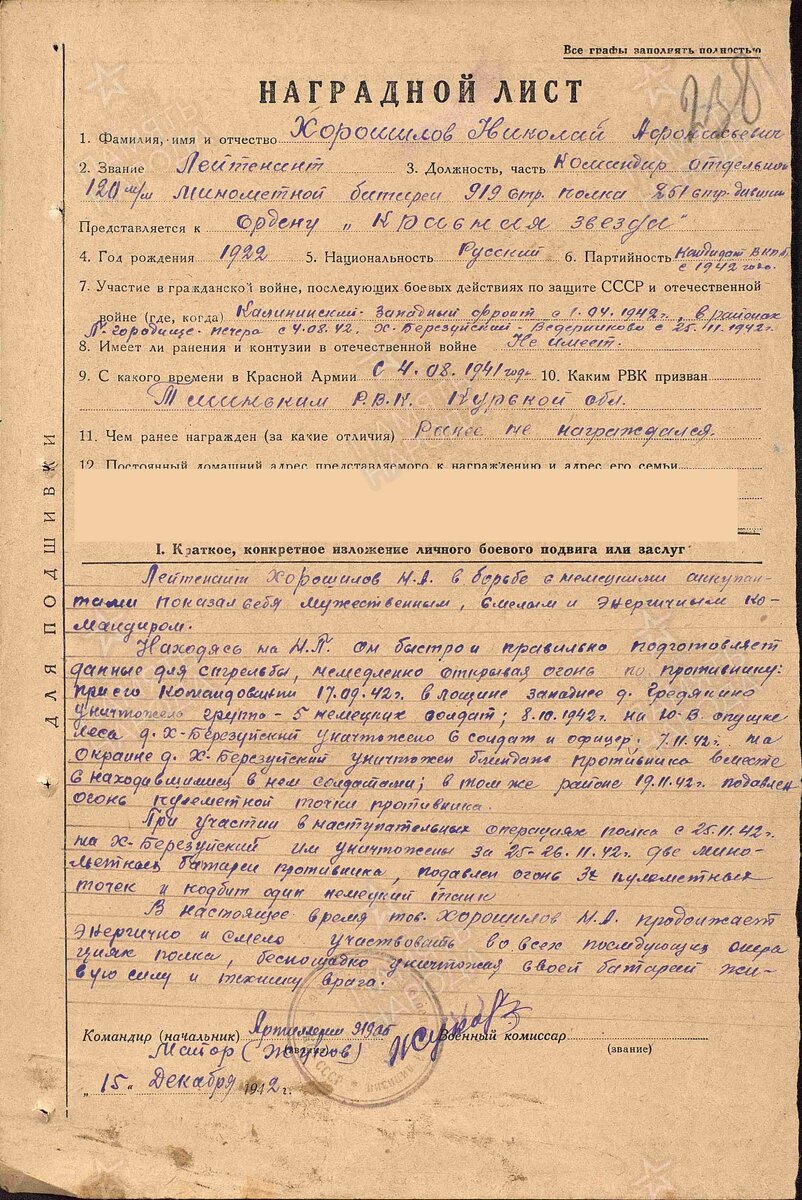 Все графы заполнять полностью
238
НАГРАДНОЙ ЛИСТ
1. Фамилия, имя и отчество Хорошилов Николай Афонасьевич
2. Звание Лейтенант 3. Должность, часть Командир отдельной
120 м/м минометной батареи 919 стр. полка 251 стр. дивизии
Представляется к ордену „Красная звезда"
4. Год рождения 1922 5. Национальность Русский 6. Партийность Кандидат ВКП(б)
с 1942 года.
7. Участие в гражданской войне, последующих боевых действиях по защите СССР и отечественной
войне (где, когда) Калининский-Западный фронт с 1.04.1942г., в районах
П-городище-печера с 4.08.42. Х-Березуйский-Ведерниково с 25.11.1942г.
8. Имеет ли ранения и контузии в отечественной войне Не имеет.
9. С какого времени в Красной Армии С 4.08.1941 года 10. Каким РВК призван
Р.В.К. Курской обл.
11. Чем ранее награжден (за какие отличия) Ранее не награждался.
12. Постоянный домашний адрес представляемого к награждению и адрес его семьи
ДЛЯ ПОДШИВКИ
I. Краткое, конкретное изложение личного боевого подвига или заслуг
Лейтенант Хорошилов Н.А. в борьбе с немецкими оккупан-
тами показал себя мужественным, смелым и энергичным ко-
мандиром.
Находясь на Н.П. он быстро и правильно подготовляет
данные для стрельбы, немедленно открывая огонь по противнику:
при его командовании 17.09.42г. в лощине западнее д. Гредякино
уничтожель группо-5 немецких солдат; 8.10.1942г. на Ю-В. опушке
леса д. Х-Березуйский уничтожено 6 солдат и офицер; 7.11.42г. на
окраине д. Х-Березуйский уничтожен блиндаж противника вместе
с находившимися в нем солдатами; в том же районе 19.11.42г. подавлен
огонь пулеметной точки противника.
При участии в наступательных операциях полка с 25.11.42г.
на Х-Березуйский им уничтожены за 25-26.11.42г. две мино-
метных батареи противника, подавлен огонь 3х пулеметных
точек и подбит один немецкий танк
В настоящее время тов. Хорошилов Н.А. продолжает
энергично и смело участвовать во всех последующих опера
циях полка, беспощадно уничтожая своей батареей жи-
вую силу и технику врага.
Командир (начальник) Артиллерии 919сп Военный комиссар
Майор (Жуков) (звание)
„15" Декабря 1942г.